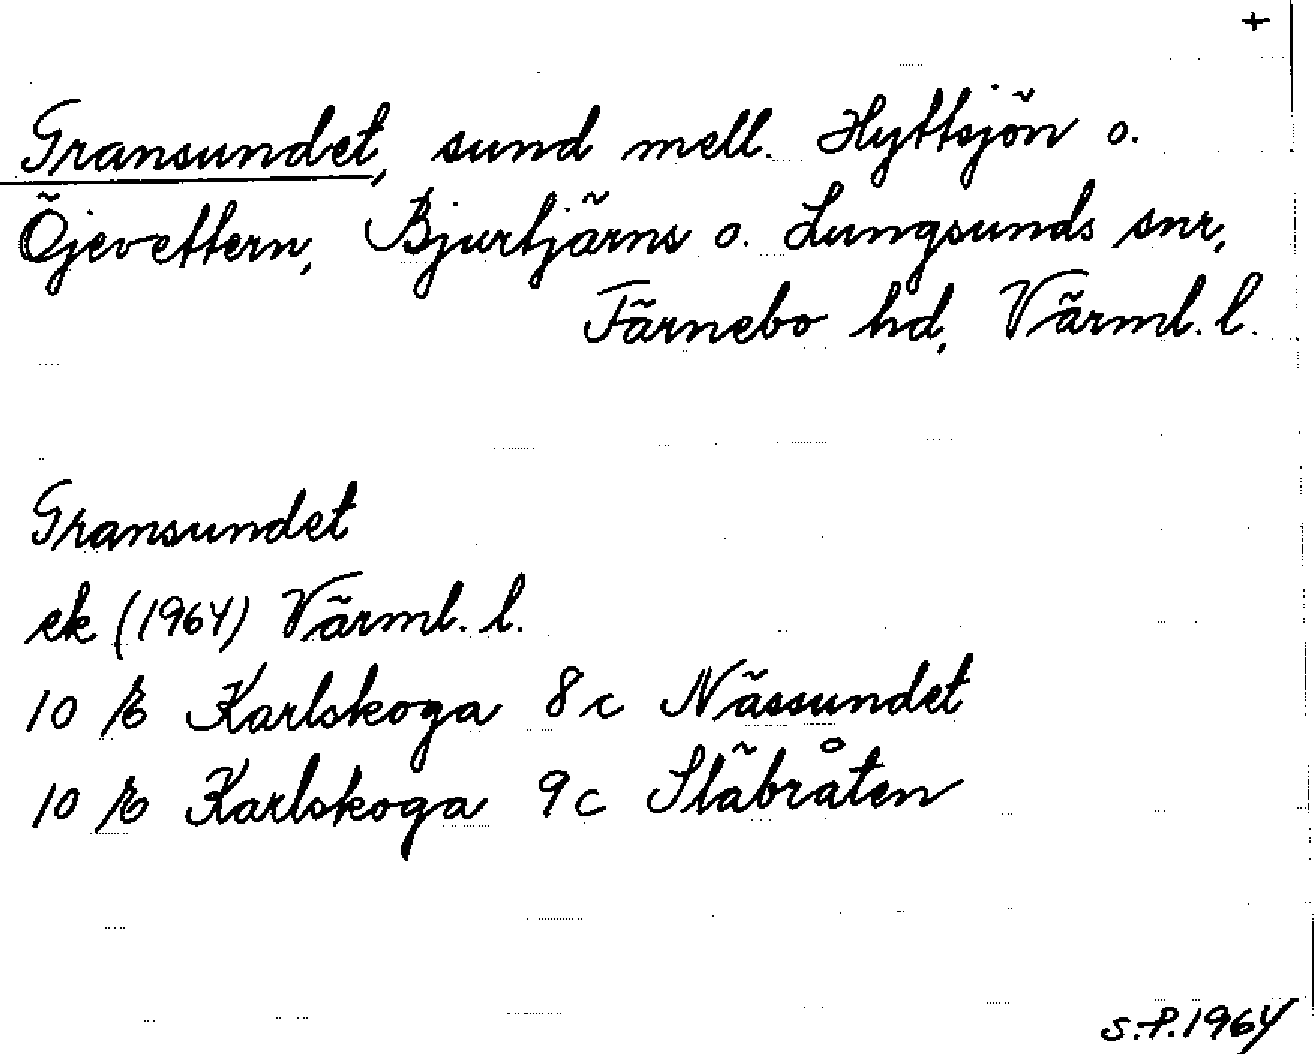 +
Gransundet, sund mell. Hyttsjön o.
Öjevettern, Bjurtjärns o. Lungsunds snr,
Färnebo hd, Värml. l.
Gransundet
ek (1964) Värml. l.
10 E Karlskoga 8c Nässundet
10 E Karlskoga 9c Släbråten
S.P. 1964